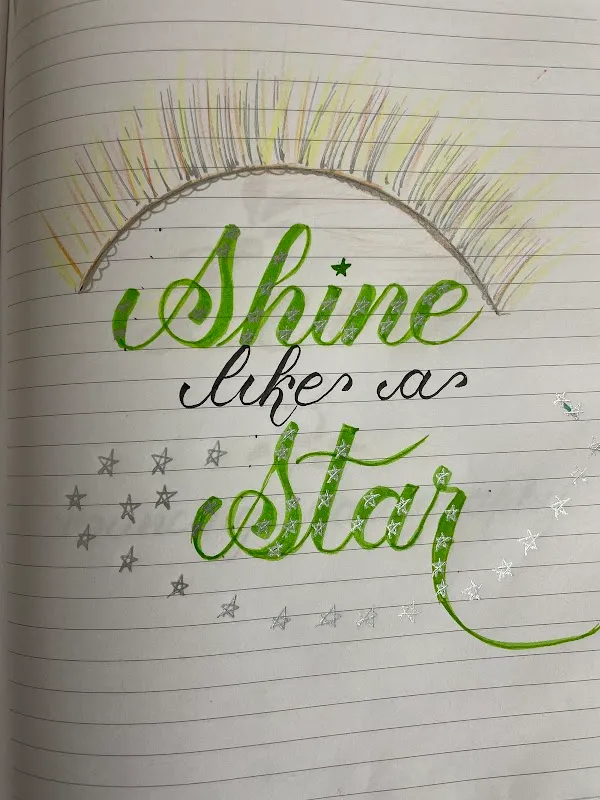 Shine
like a
Star